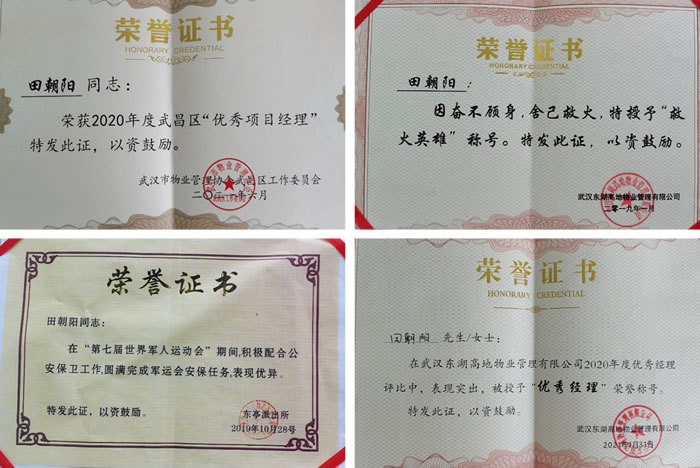 荣誉证书
HONORARY CREDENTIAL
田朝阳 同志：
荣获2020年度武昌区“优秀项目经理”
特发此证，以资鼓励。
武汉市物业管理协会武昌区工作委员会
二〇二一年六月
荣誉证书
HONORARY CREDENTIAL
田朝阳：
因奋不顾身，舍己救火，特授予“救
火英雄”称号。特发此证，以资鼓励。
武汉东湖高地物业管理有限公司
二零一九年一月
荣誉证书
田朝阳同志：
在“第七届世界军人运动会”期间,积极配合公
安保卫工作,圆满完成军运会安保任务,表现优异。
特发此证，以资鼓励。
东亭派出所
2019年10月28号
荣誉证书
HONORARY CREDENTIAL
田朝阳 先生/女士：
在武汉东湖高地物业管理有限公司2020年度优秀经理
评比中，表现突出，被授予“优秀经理”荣誉称号。
特发此证，以资鼓励。
武汉东湖高地物业管理有限公司
2021年1月31日